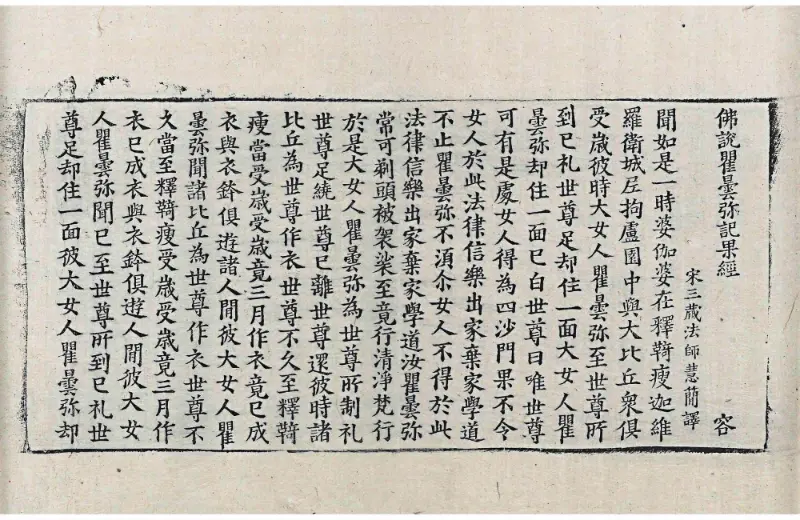 佛說瞿曇弥記果經
容
宋三藏法師慧簡譯
聞如是一時婆伽婆在釋鞫瘦迦維
羅衛城尼拘盧園中與大比丘衆俱
受歲彼時大女人瞿曇弥至世尊所
到已礼世尊足却住一面大女人瞿
曇弥却住一面已白世尊曰唯世尊
可有是處女人得為四沙門果不令
女人於此法律信樂出家棄家學道
不止瞿曇弥不湏尒女人不得於此
法律信樂出家棄家學道汝瞿曇弥
常可剃頭被袈裟至竟行清淨梵行
於是大女人瞿曇弥為世尊所制礼
世尊足繞世尊已離世尊還彼時諸
比丘為世尊作衣世尊不久至釋鞫
瘦當受歲受歲竟三月作衣竟已成
衣與衣鉢俱遊諸人閒彼大女人瞿
曇弥聞諸比丘為世尊作衣世尊不
久當至釋鞫瘦受歲受歲竟三月作
衣已成衣與衣鉢俱遊人閒彼大女
人瞿曇弥聞已至世尊所到已礼世
尊足却住一面彼大女人瞿曇弥却